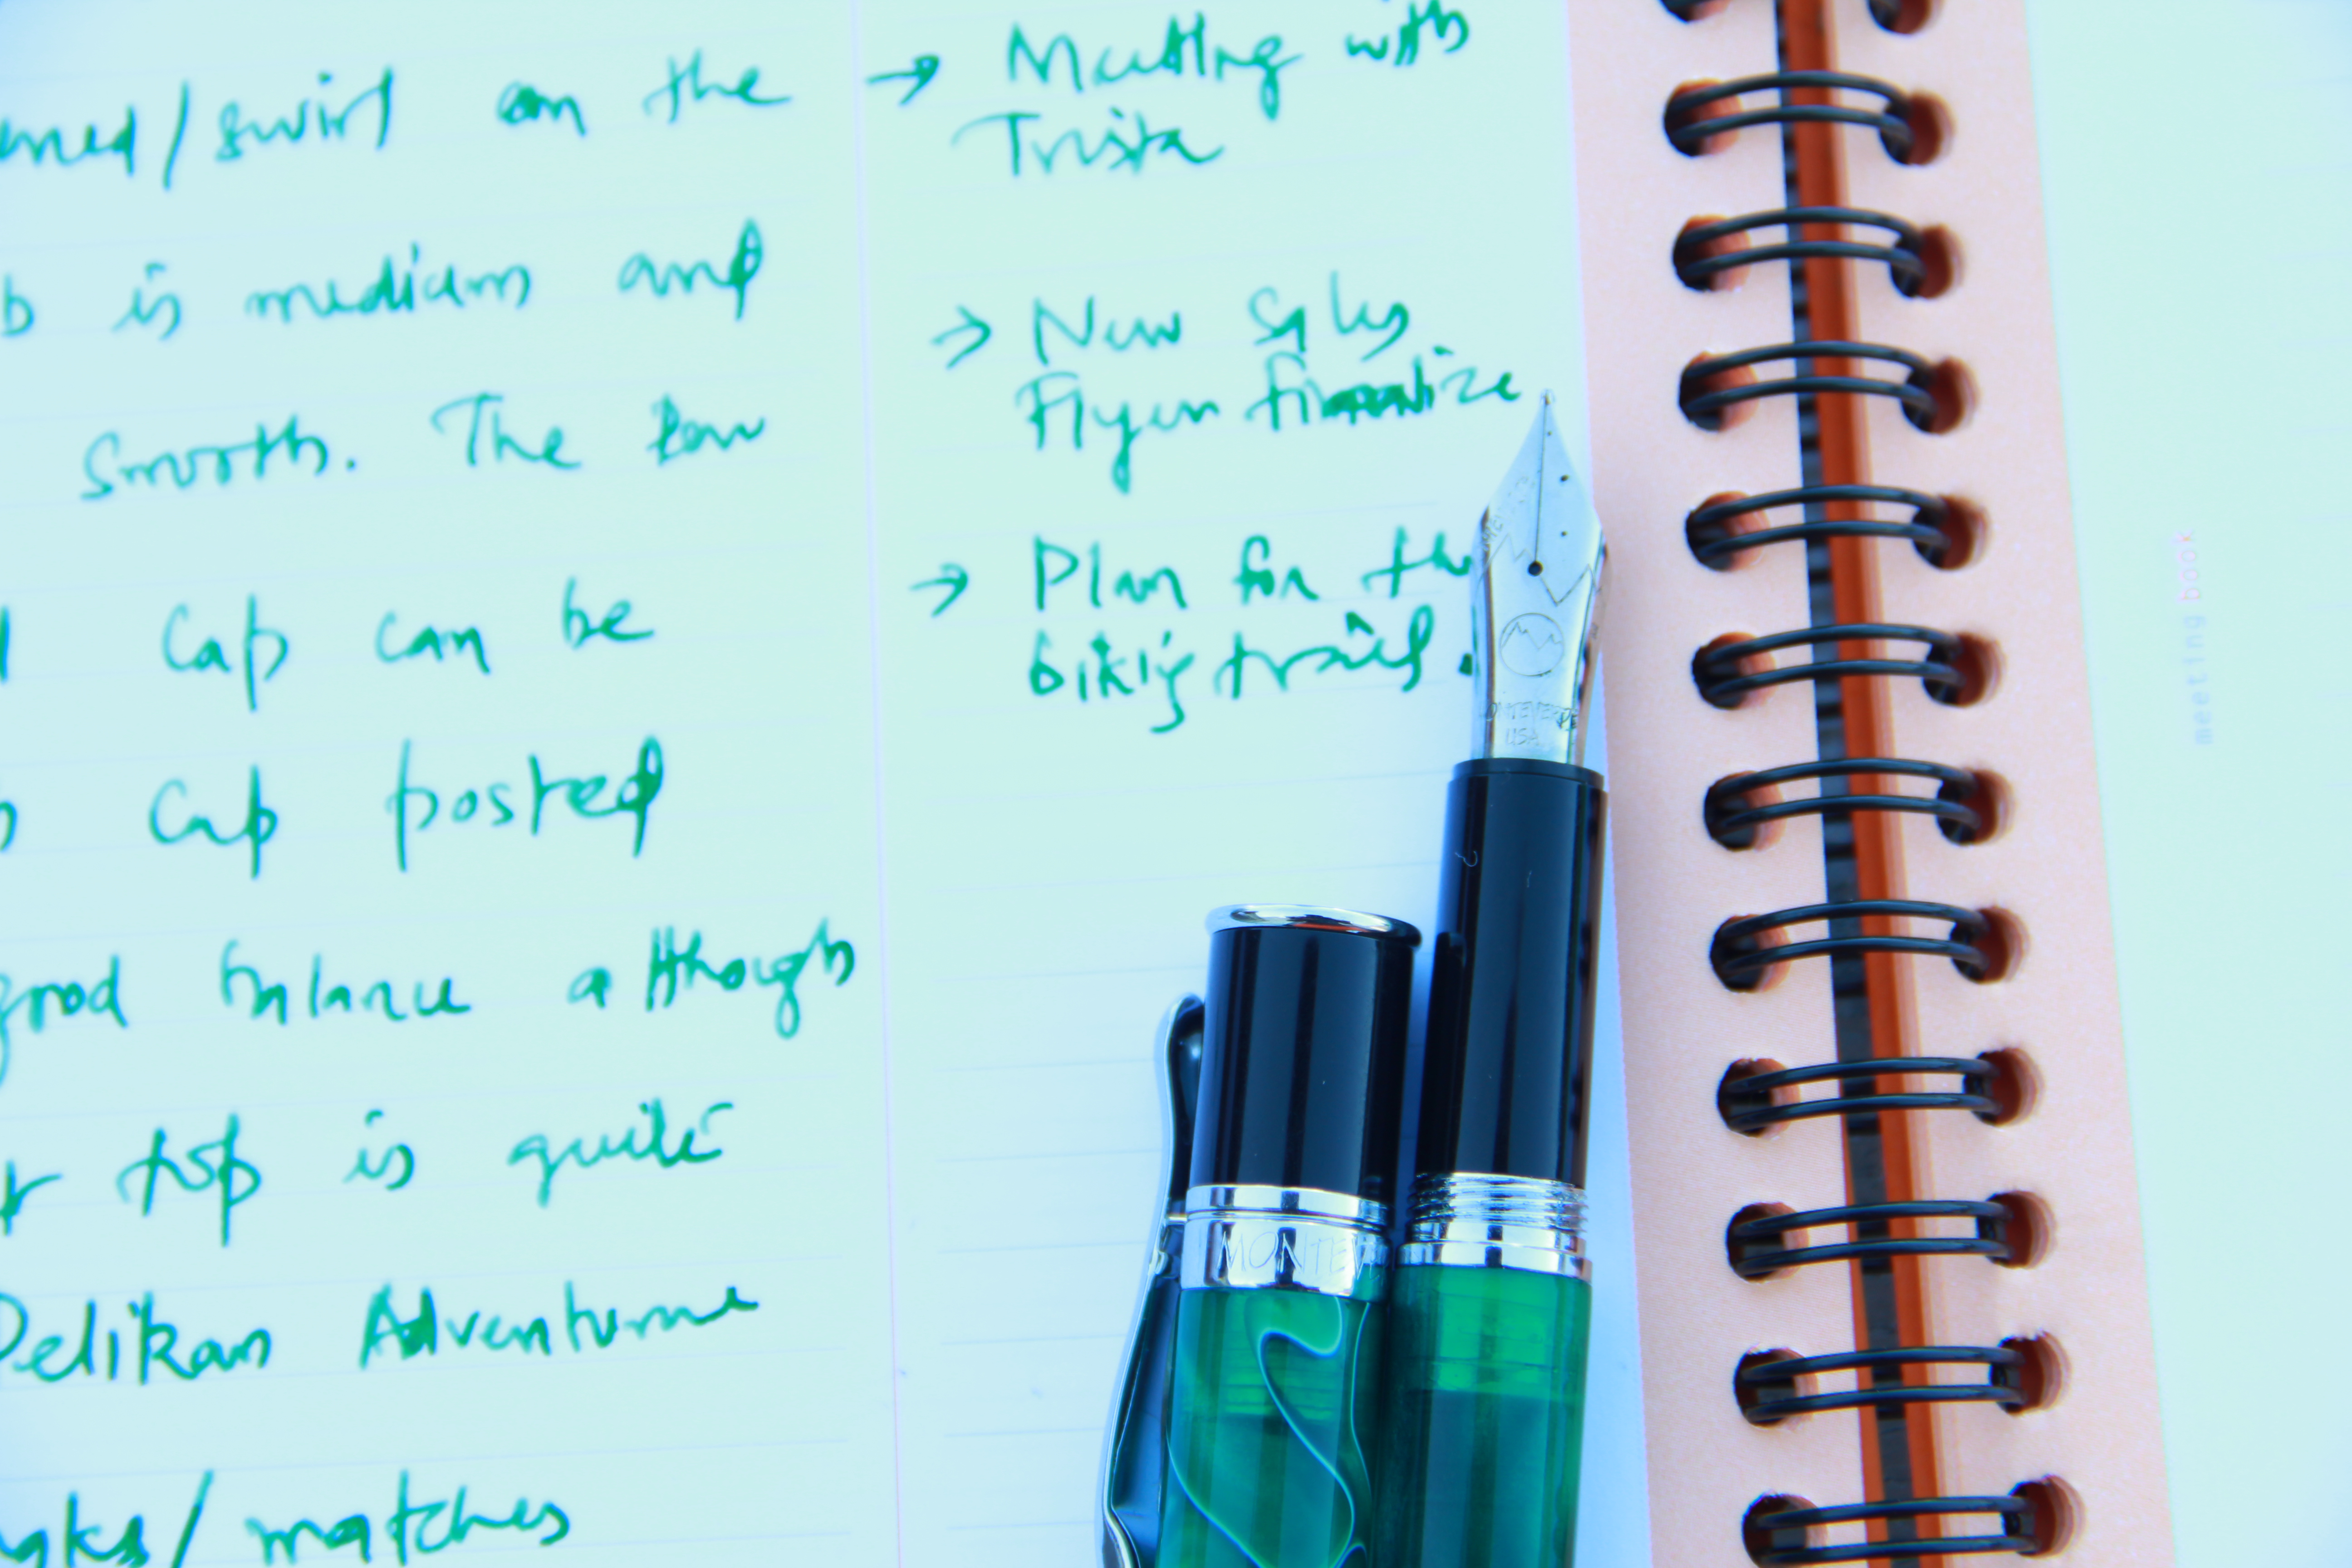 swirl on the
is medium and
Smooth. The
Cap can be
Cap posted
good balance although
top is quite
Pelikan Adventurine
/ matches
→ Meeting with
Trista
→ New Sales
Flyer finalize
→ Plan for the
biking trail.
MONTEVERDE
USA
MONTEV
meeting book